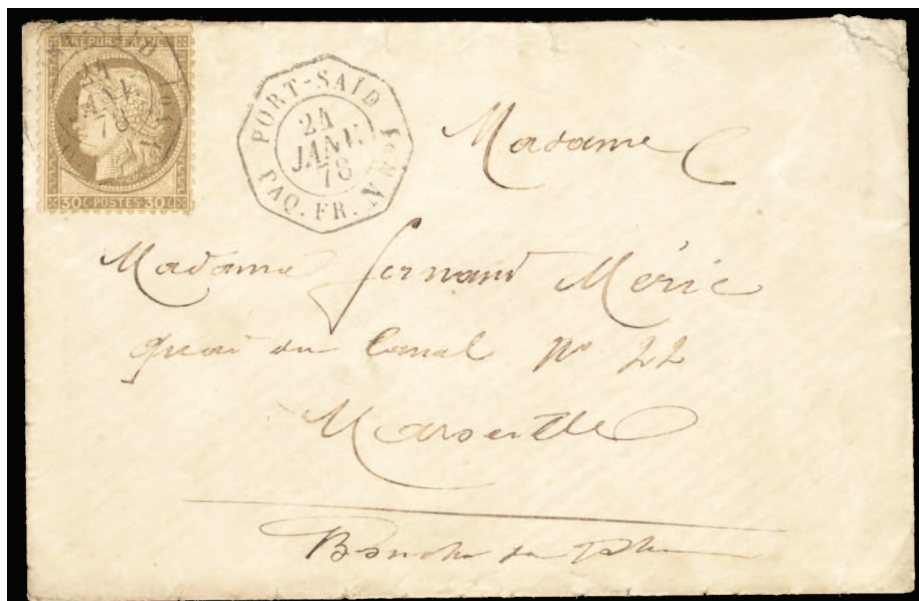 REPUB. FRANC.
30 C. POSTES. 30 C.
PORT-SAID
24
JANV.
78
PAQ. FR. N Nº 1
Madame
Madame Fernand Méric
quai du Canal Nº 22
Marseille
Bouches du Rhône